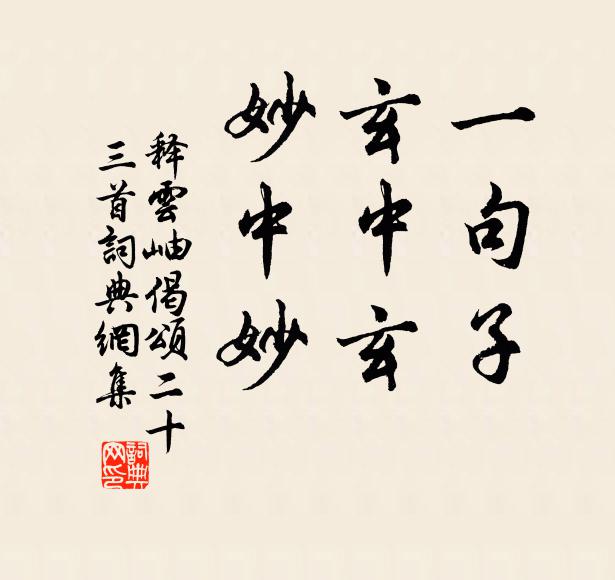 一句子
玄中玄
妙中妙
释雲岫偈頌二十
三首詞典網集
詞典
网印